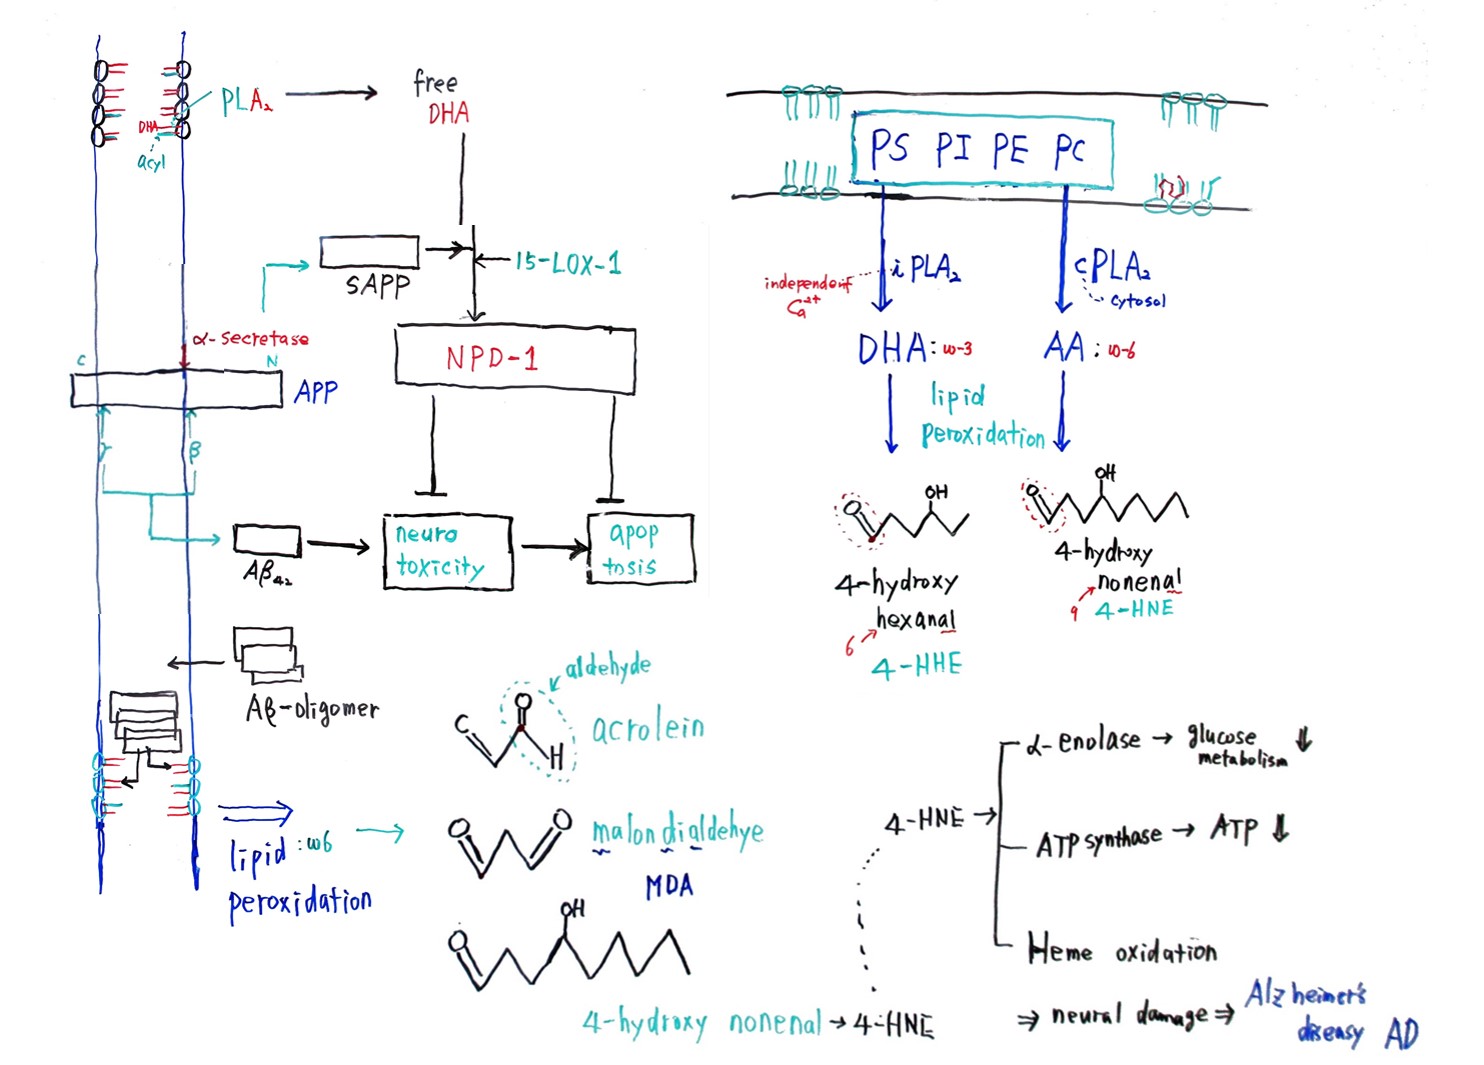 PLA₂
DHA
acyl
free
DHA
sAPP
15-LOX-1
α-secretase
C
N
APP
NPD-1
γ
β
Aβ₄₂
neuro
toxicity
apop
tosis
Aβ-oligomer
lipid :ω6
peroxidation
aldehyde
C
O
H
acrolein
O
O
malondialdehye
MDA
O
OH
4-hydroxy nonenal → 4-HNE
PS PI PE PC
independent
Ca²⁺
iPLA₂
cPLA₂
cytosol
DHA:ω-3
AA:ω-6
lipid
peroxidation
O
OH
4-hydroxy
hexanal
6
4-HHE
O
OH
4-hydroxy
nonenal
9
4-HNE
4-HNE →
α-enolase → glucose
metabolism ⇓
ATP synthase → ATP ⇓
Heme oxidation
⇒ neural damage ⇒ Alzheimer's
diseasy AD